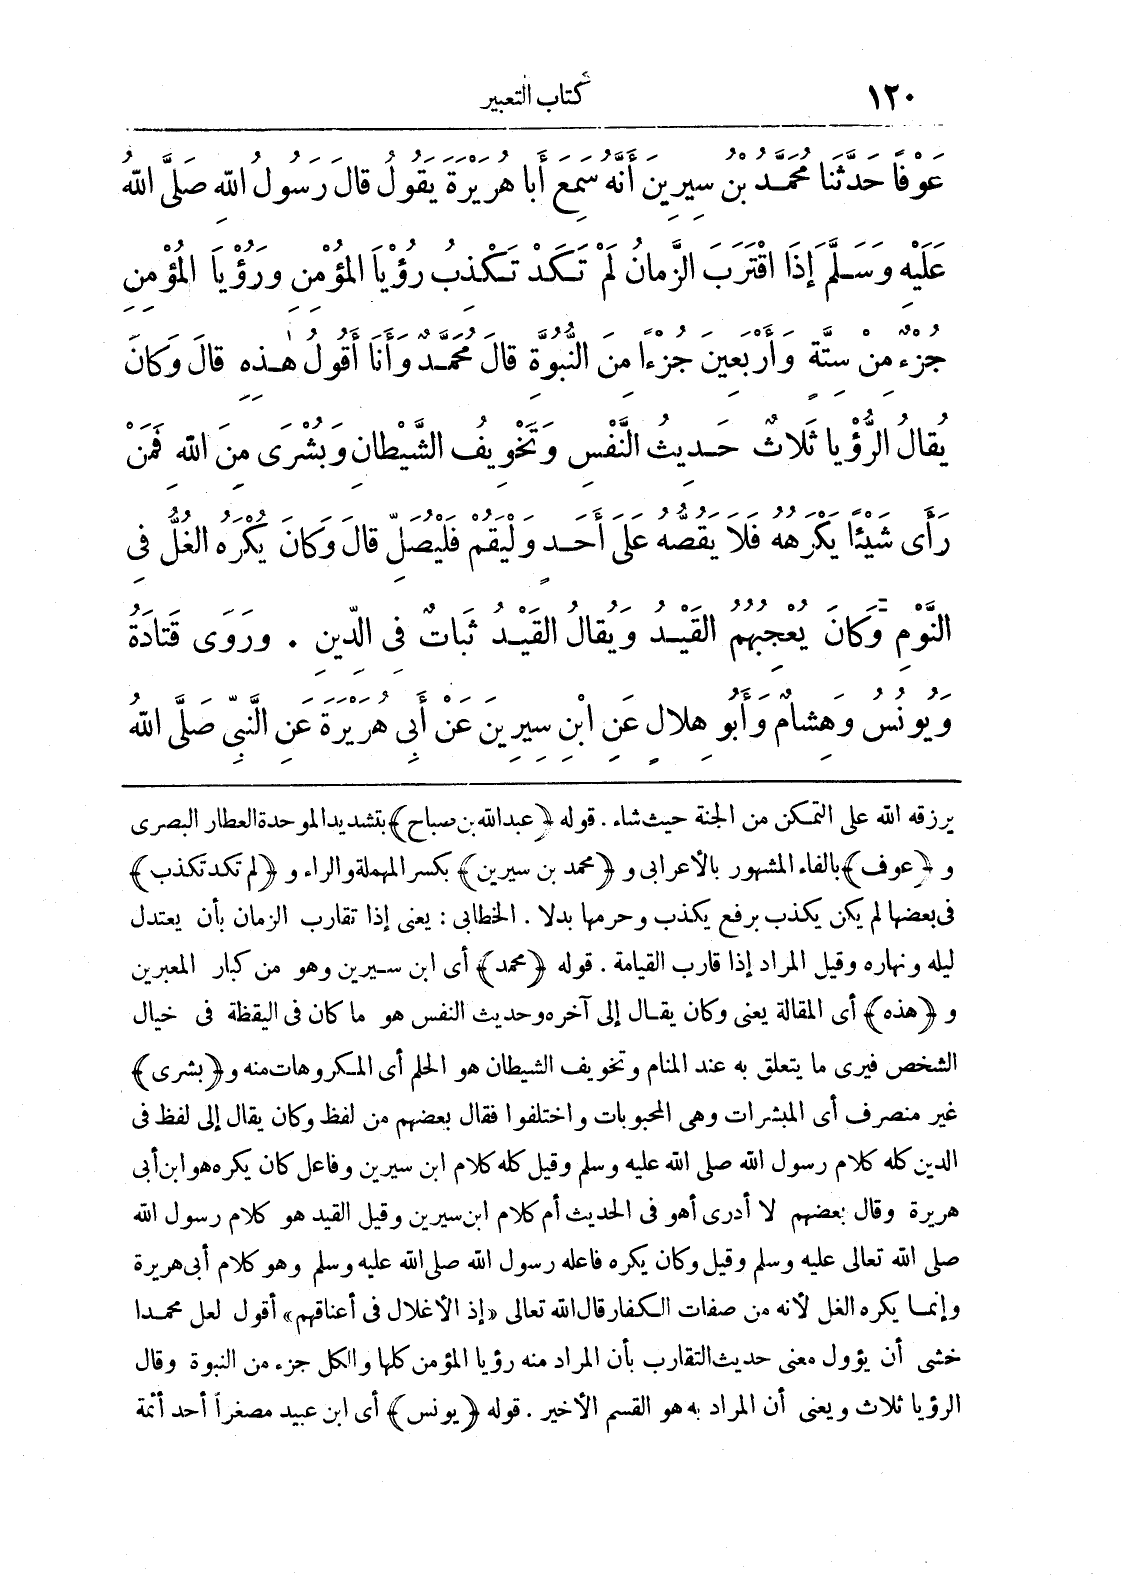 ١٢٠ كتاب التعبير
عَوْفًا حَدَّثَنَا مُحَمَّدُ بْنُ سِيرِينَ أَنَّهُ سَمِعَ أَبَا هُرَيْرَةَ يَقُولُ قَالَ رَسُولُ اللهِ صَلَّى اللهُ
عَلَيْهِ وَسَلَّمَ إِذَا اقْتَرَبَ الزَّمَانُ لَمْ تَكَدْ تَكْذِبُ رُؤْيَا الْمُؤْمِنِ وَرُؤْيَا الْمُؤْمِنِ
جُزْءٌ مِنْ سِتَّةٍ وَأَرْبَعِينَ جُزْءًا مِنَ النُّبُوَّةِ قَالَ مُحَمَّدٌ وَأَنَا أَقُولُ هٰذِهِ قَالَ وَكَانَ
يُقَالُ الرُّؤْيَا ثَلَاثٌ حَدِيثُ النَّفْسِ وَتَخْوِيفُ الشَّيْطَانِ وَبُشْرَى مِنَ اللهِ فَمَنْ
رَأَى شَيْئًا يَكْرَهُهُ فَلَا يَقُصَّهُ عَلَى أَحَدٍ وَلْيَقُمْ فَلْيُصَلِّ قَالَ وَكَانَ يُكْرَهُ الْغُلُّ فِي
النَّوْمِ وَكَانَ يُعْجِبُهُمُ الْقَيْدُ وَيُقَالُ الْقَيْدُ ثَبَاتٌ فِي الدِّينِ . وَرَوَى قَتَادَةُ
وَيُونُسُ وَهِشَامٌ وَأَبُو هِلَالٍ عَنِ ابْنِ سِيرِينَ عَنْ أَبِي هُرَيْرَةَ عَنِ النَّبِيِّ صَلَّى اللهُ
يرزقه الله على التمكن من الجنة حيث شاء . قوله ﴿عبد الله بن صباح﴾ بتشديد الموحدة العطار البصرى
و ﴿عوف﴾ بالفاء المشهور بالأعرابى و ﴿محمد بن سيرين﴾ بكسر المهملة والراء و ﴿لم تكد تكذب﴾
فى بعضها لم يكن يكذب برفع يكذب وحرمها بدلا . الخطابى : يعنى إذا تقارب الزمان بأن يعتدل
ليله ونهاره وقيل المراد إذا قارب القيامة . قوله ﴿محمد﴾ أى ابن سيرين وهو من كبار المعبرين
و ﴿هذه﴾ أى المقالة يعنى وكان يقال إلى آخره وحديث النفس هو ما كان فى اليقظة فى خيال
الشخص فيرى ما يتعلق به عند المنام وتخويف الشيطان هو الحلم أى المكروهات منه و ﴿بشرى﴾
غير منصرف أى المبشرات وهى المحبوبات واختلفوا فقال بعضهم من لفظ وكان يقال إلى لفظ فى
الدين كله كلام رسول الله صلى الله عليه وسلم وقيل كله كلام ابن سيرين وفاعل كان يكره هو ابن أبى
هريرة وقال بعضهم لا أدرى أهو فى الحديث أم كلام ابن سيرين وقيل القيد هو كلام رسول الله
صلى الله تعالى عليه وسلم وقيل وكان يكره فاعله رسول الله صلى الله عليه وسلم وهو كلام أبى هريرة
وإنما يكره الغل لأنه من صفات الكفار قال الله تعالى «إذ الأغلال فى أعناقهم» أقول لعل محمدا
خشى أن يؤول معنى حديث التقارب بأن المراد منه رؤيا المؤمن كلها والكل جزء من النبوة وقال
الرؤيا ثلاث ويعنى أن المراد به هو القسم الأخير . قوله ﴿يونس﴾ أى ابن عبيد مصغراً أحد أئمة